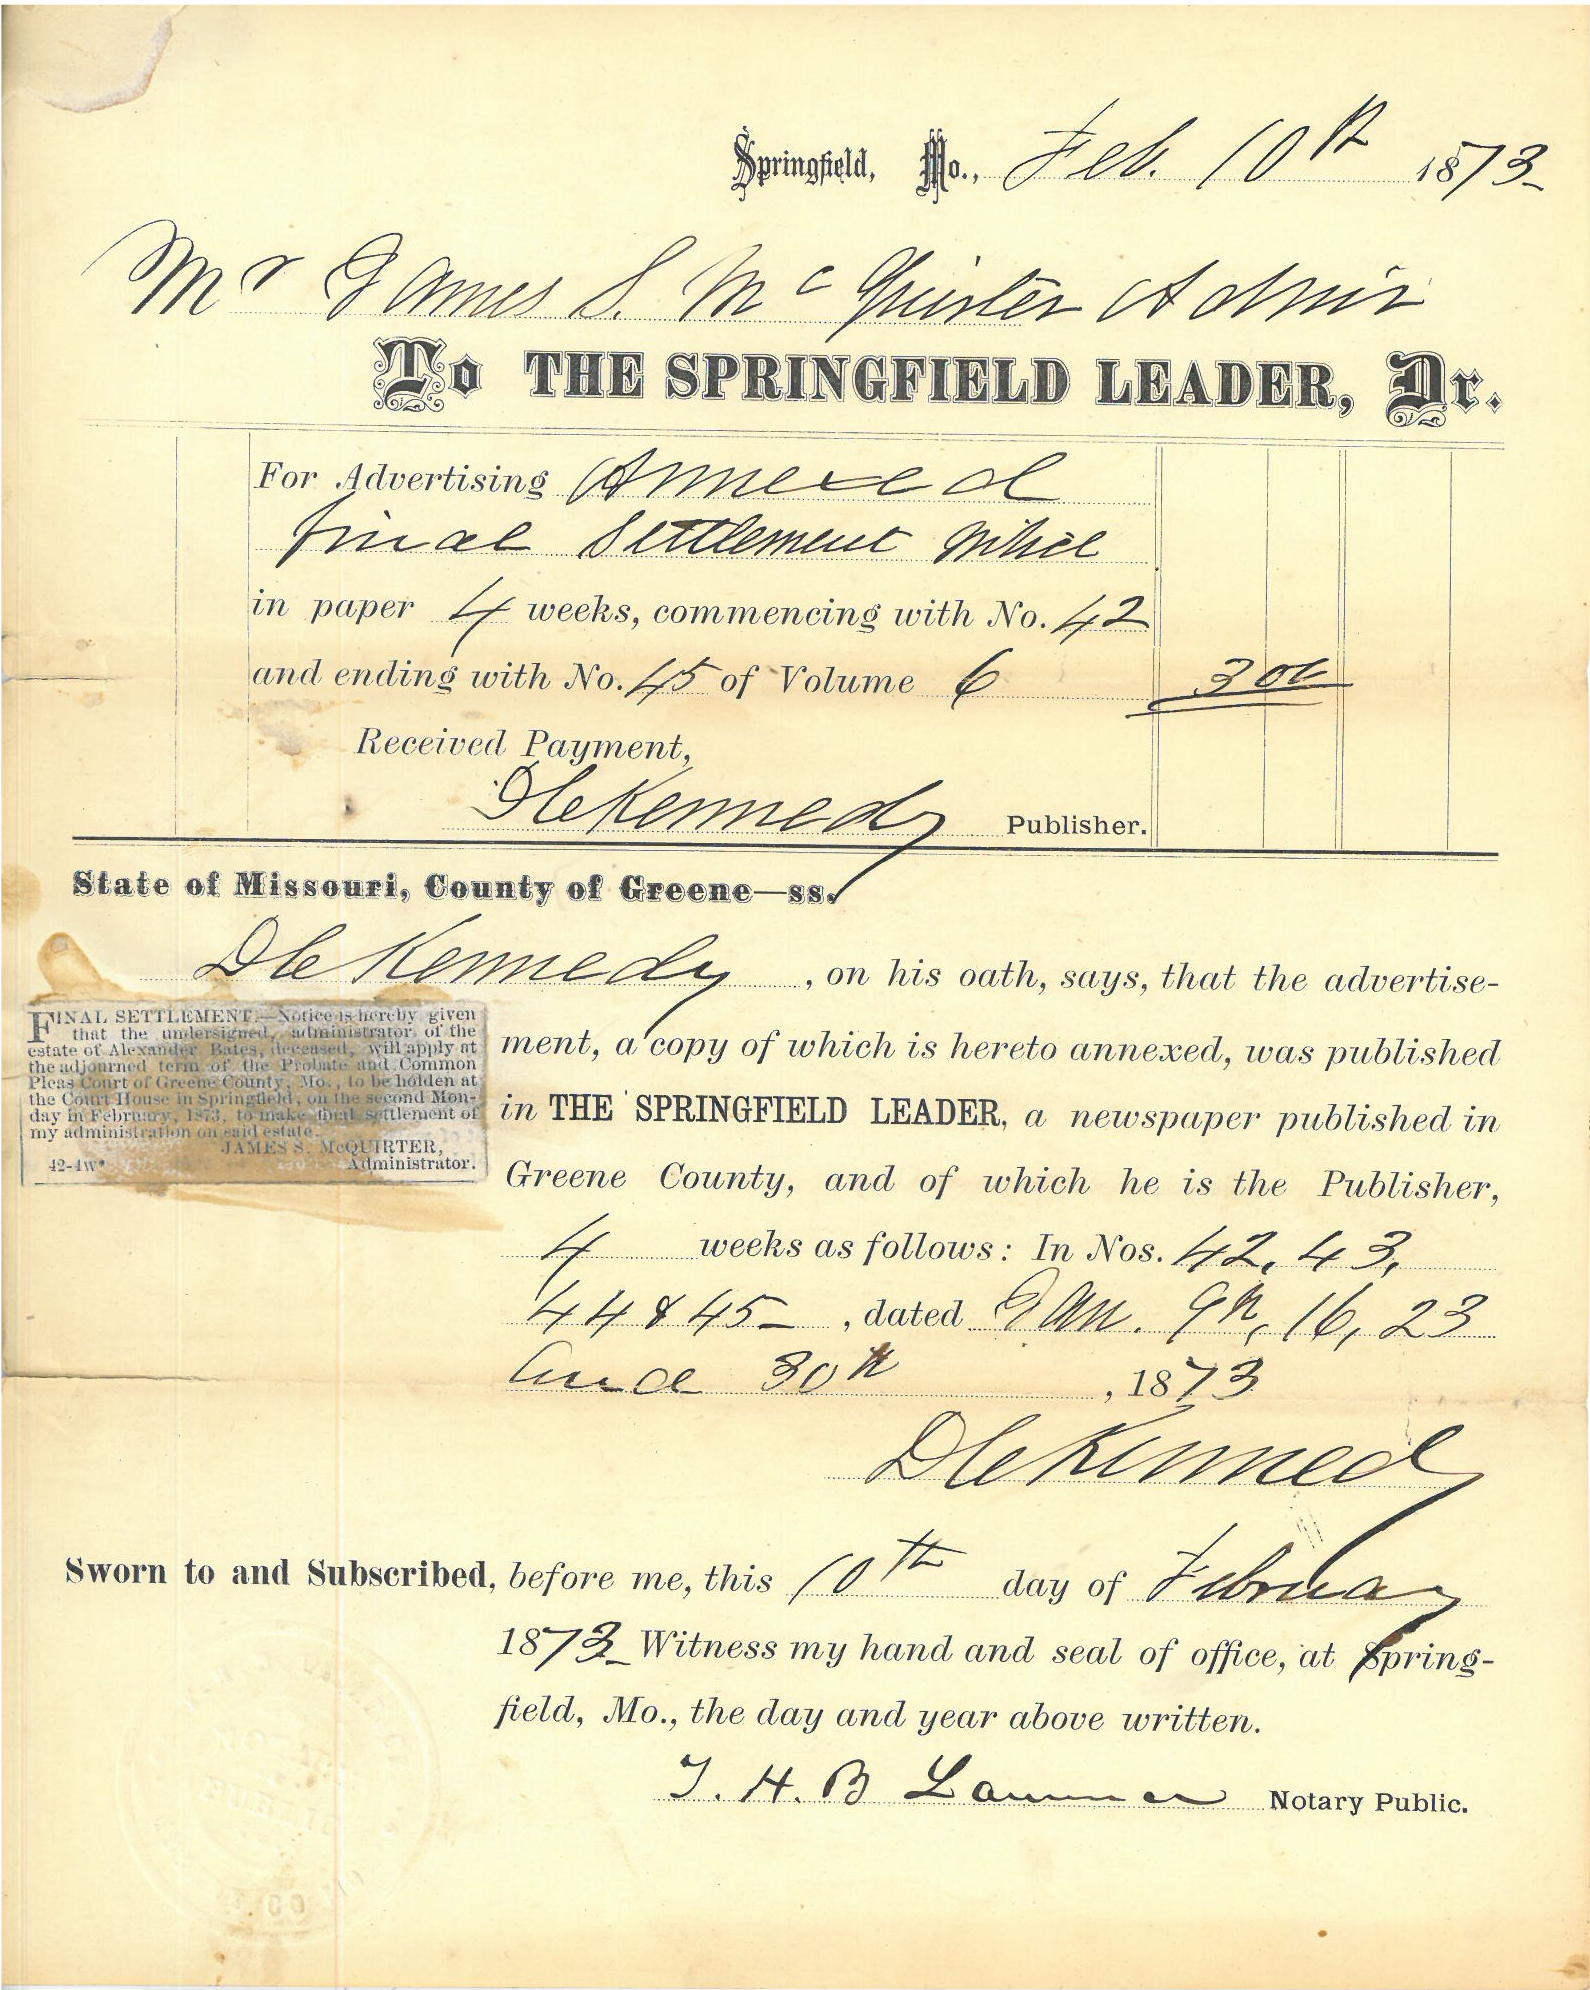 Springfield, Mo., Feb. 10th 1873
Mr James S. McQuirter Admir
To THE SPRINGFIELD LEADER, Dr.
For Advertising Annexed
final Settlement Notice
in paper 4 weeks, commencing with No. 42
and ending with No. 45 of Volume 6 3 00
Received Payment,
D C Kennedy Publisher.
State of Missouri, County of Greene—ss.
D C Kennedy, on his oath, says, that the advertise-
ment, a copy of which is hereto annexed, was published
in THE SPRINGFIELD LEADER, a newspaper published in
Greene County, and of which he is the Publisher,
4 weeks as follows: In Nos. 42, 43,
44 & 45, dated Jan. 9th, 16, 23
and 30th, 1873
D C Kennedy
FINAL SETTLEMENT.—Notice is hereby given
that the undersigned, administrator of the
estate of Alexander Bates, deceased, will apply at
the adjourned term of the Probate and Common
Pleas Court of Greene County, Mo., to be holden at
the Court House in Springfield, on the second Mon-
day in February, 1873, to make final settlement of
my administration on said estate.
JAMES S. McQUIRTER,
42-4w* Administrator.
Sworn to and Subscribed, before me, this 10th day of February
1873 Witness my hand and seal of office, at Spring-
field, Mo., the day and year above written.
T. H. B Notary Public.